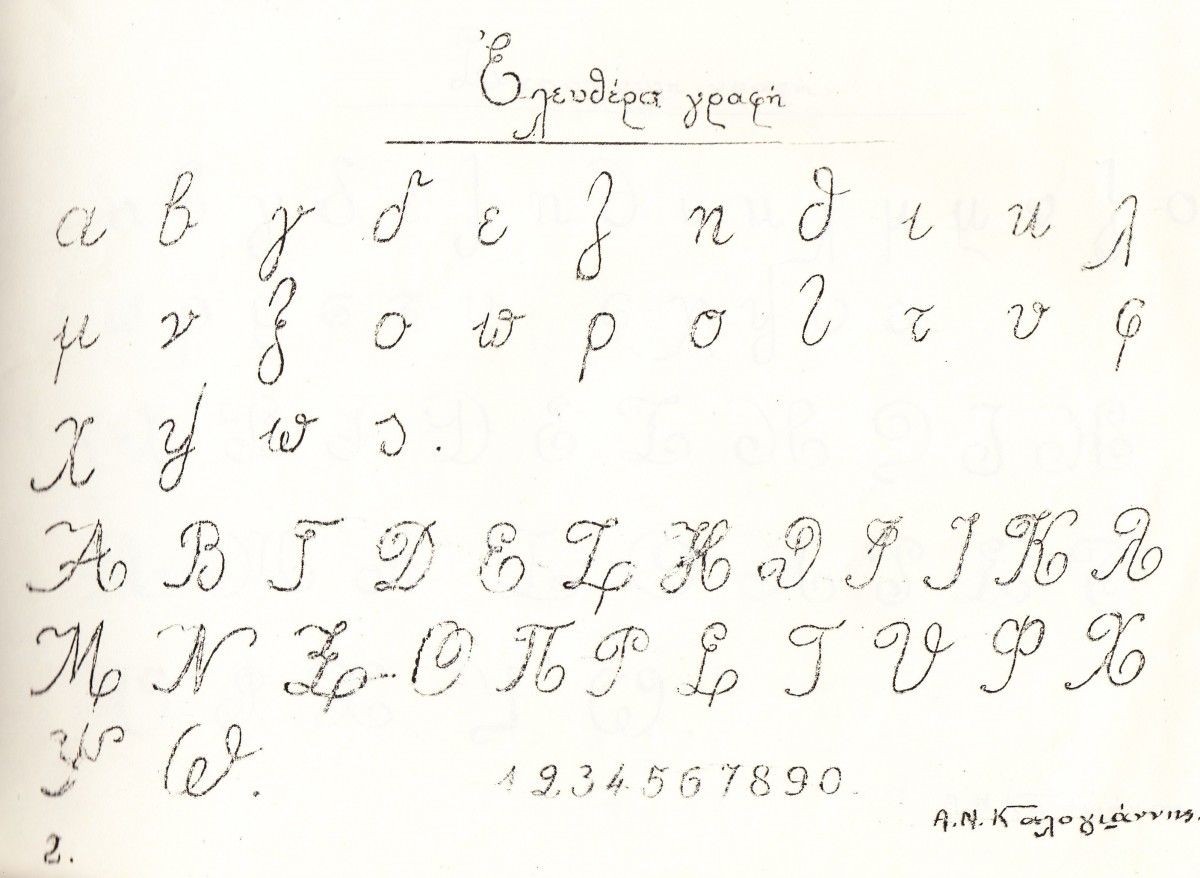 Ἐλευθέρα γραφή
α β γ δ ε ζ η θ ι κ λ
μ ν ξ ο π ρ σ ζ τ υ φ
χ ψ ω ς.
Α Β Γ Δ Ε Ζ Η Θ Ι Ι Κ Λ
Μ Ν Ξ Ο Π Ρ Σ Τ Υ Φ Χ
Ψ Ω.
1234567890.
Α.Ν. Καλογιάννης.
2.